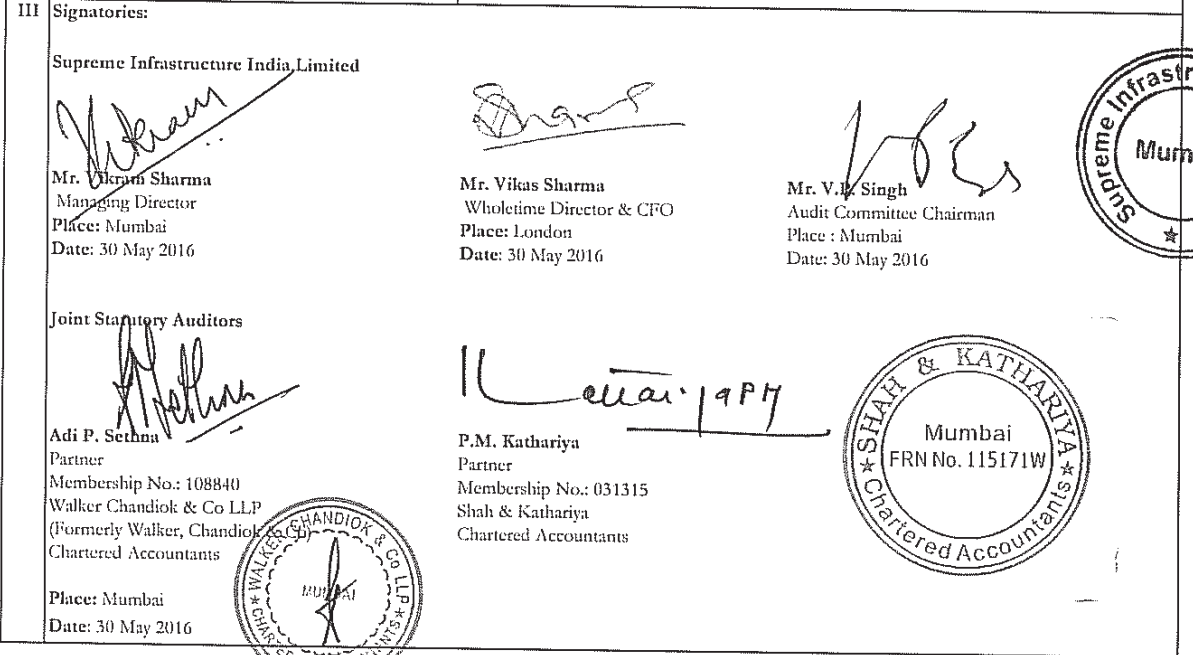 III Signatories:
Supreme Infrastructure India Limited
Mr. Vikram Sharma
Managing Director
Place: Mumbai
Date: 30 May 2016
Mr. Vikas Sharma
Wholetime Director & CFO
Place: London
Date: 30 May 2016
Mr. V.P. Singh
Audit Committee Chairman
Place : Mumbai
Date: 30 May 2016
Supreme
Joint Statutory Auditors
Adi P. Sethna
Partner
Membership No.: 108840
Walker Chandiok & Co LLP
(Formerly Walker, Chandiok & Co)
Chartered Accountants
Place: Mumbai
Date: 30 May 2016
WALKER CHANDIOK & Co LLP
MUMBAI
P.M. Kathariya
Partner
Membership No.: 031315
Shah & Kathariya
Chartered Accountants
SHAH & KATHARIYA
Mumbai
FRN No. 115171W
Chartered Accountants